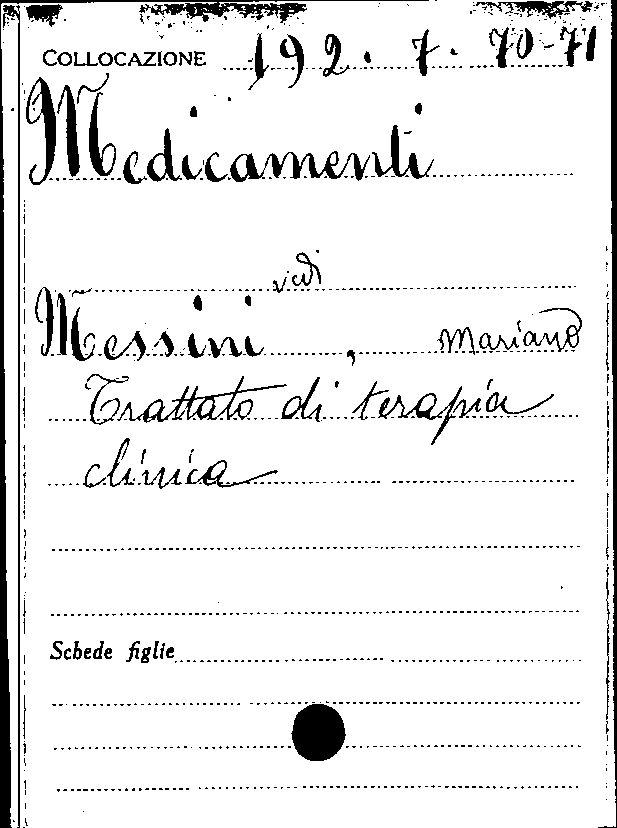 COLLOCAZIONE 192.7.70-71
Medicamenti
vedi
Messini, Mariano
Trattato di terapia
clinica
Schede figlie